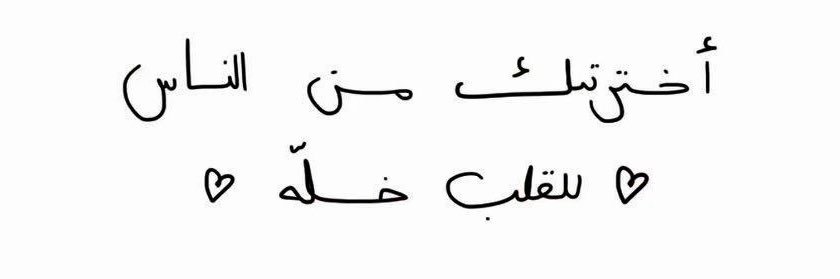 أخترتك من الناس
♡ للقلب خلّه ♡